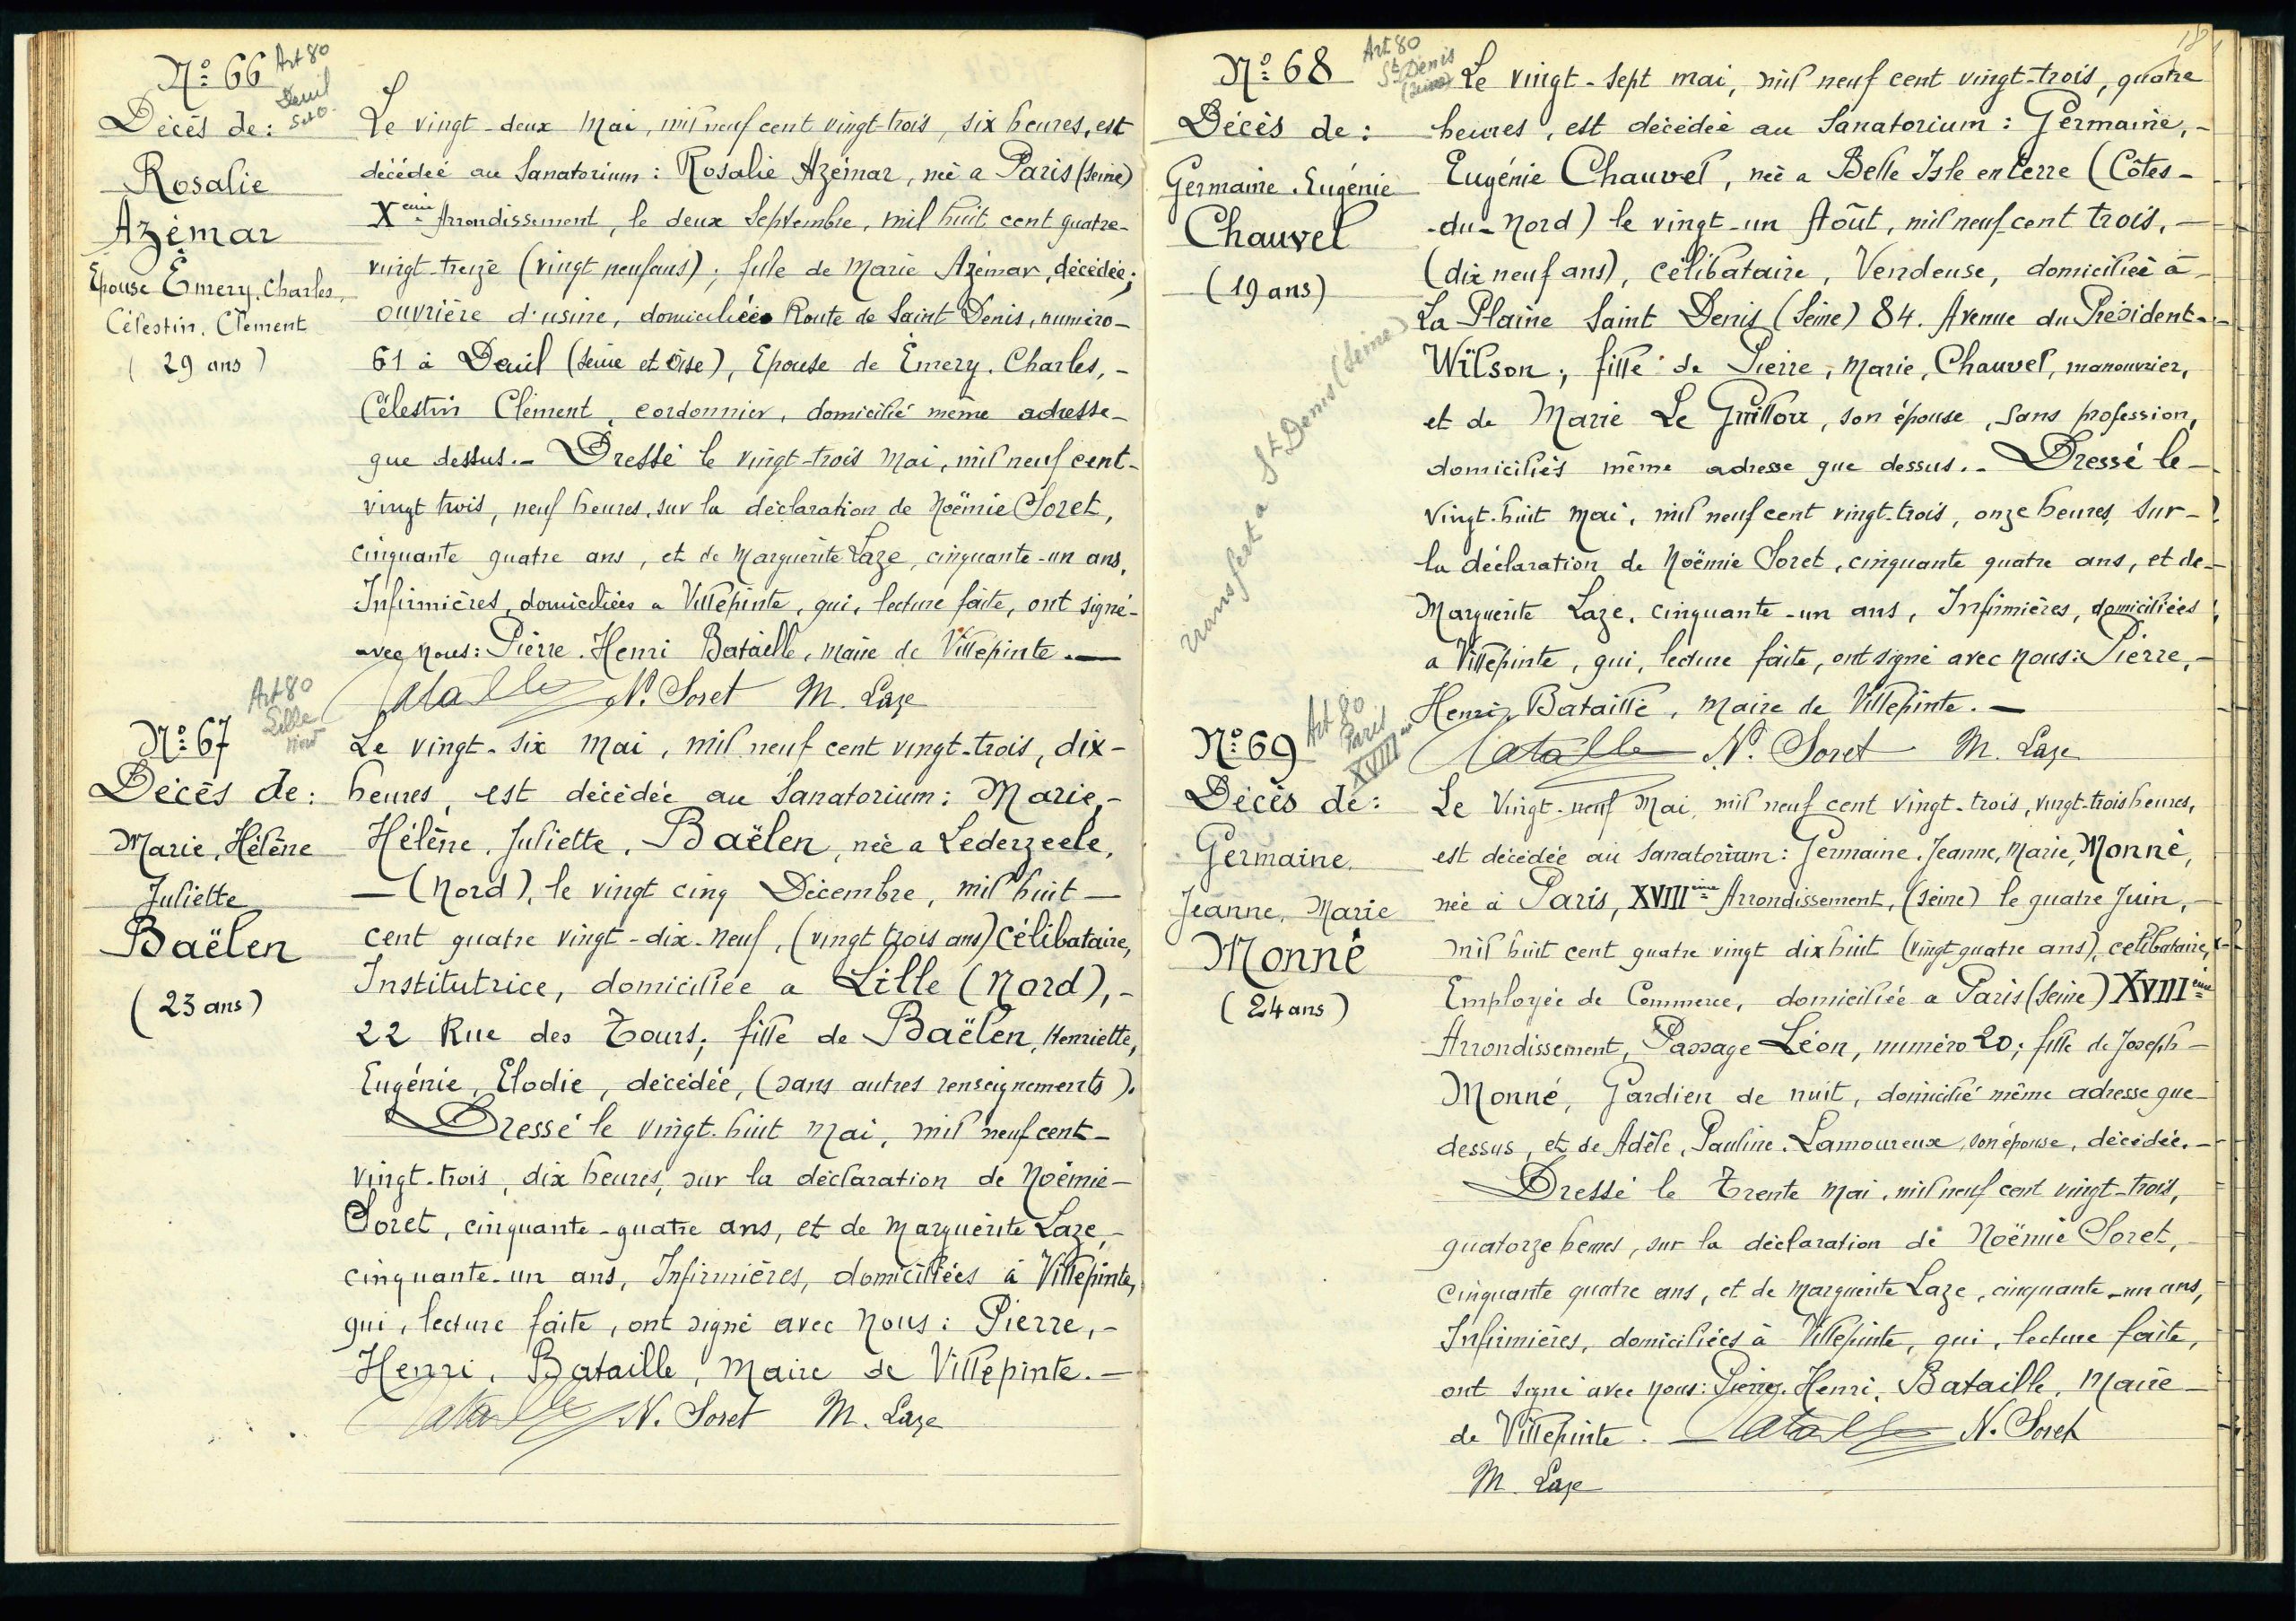 N° 66
Art 80
Deuil
S et O
Décès de :
Rosalie
Azémar
Epouse Émery, Charles,
Célestin, Clément
( 29 ans )
Le vingt-deux Mai, mil neuf cent vingt-trois, six heures, est
décédée au Sanatorium : Rosalie Azémar, née a Paris (Seine)
Xème Arrondissement, le deux Septembre, mil huit cent quatre-
vingt-treize (vingt neuf ans) ; fille de Marie Azémar, décédée ;
ouvrière d'usine, domiciliée Route de Saint Denis, numéro-
61 à Deuil (Seine et Oise), Epouse de Émery, Charles, -
Célestin Clément, cordonnier, domicilié même adresse-
que dessus.- Dressé le vingt-trois Mai, mil neuf cent-
vingt trois, neuf heures, sur la déclaration de Noëmie Soret,
cinquante quatre ans, et de Marguerite Laze, cinquante-un ans,
Infirmières, domiciliées a Villepinte, qui, lecture faite, ont signé-
avec nous : Pierre, Henri Bataille, maire de Villepinte.—
Bataille N. Soret M. Laze
N° 67
Art 80
Lille
Nord
Décès de :
Marie, Hélène
Juliette
Baëlen
( 23 ans )
Le vingt-six Mai, mil neuf cent vingt-trois, dix-
heures, est décédée au Sanatorium : Marie,-
Hélène, Juliette, Baëlen, née a Lederzeele,
— (Nord), le vingt cinq Décembre, mil huit —
cent quatre vingt-dix-neuf, (vingt trois ans) Célibataire,
Institutrice, domiciliée a Lille (Nord), -
22 Rue des Tours ; fille de Baëlen, Henriette,
Eugénie, Elodie, décédée, (sans autres renseignements).
Dressé le vingt-huit Mai, mil neuf cent-
vingt-trois, dix heures, sur la déclaration de Noëmie-
Soret, cinquante-quatre ans, et de Marguerite Laze,-
cinquante-un ans, Infirmières, domiciliées à Villepinte,
qui, lecture faite, ont signé avec nous : Pierre, -
Henri, Bataille, Maire de Villepinte.—
Bataille N. Soret M. Laze
18
N° 68
Art 80
St Denis
(Seine)
Décès de :
Germaine, Eugénie
Chauvel
( 19 ans )
transfert a St Denis (Seine)
Le vingt-sept mai, mil neuf cent vingt-trois, quatre
heures, est décédée au Sanatorium : Germaine, -
Eugénie Chauvel, née a Belle Isle en Terre (Côtes-
-du-Nord) le vingt-un Août, mil neuf cent trois, —
(dix neuf ans), célibataire, Vendeuse, domiciliée à-
La Plaine Saint Denis (Seine) 84. Avenue du Président-
Wilson ; fille de Pierre, Marie, Chauvel, manouvrier,
et de Marie Le Guillou, son épouse, sans profession,
domiciliés même adresse que dessus.- Dressé le-
vingt-huit Mai, mil neuf cent vingt-trois, onze heures, sur-
la déclaration de Noëmie Soret, cinquante quatre ans, et de-
Marguerite Laze, cinquante-un ans, Infirmières, domiciliées
a Villepinte, qui, lecture faite, ont signé avec nous : Pierre, -
Henri, Bataille, Maire de Villepinte.—
Bataille N. Soret M. Laze
N° 69
Art 80
Paris
XVIIIème
Décès de :
Germaine
Jeanne, Marie
Monné
( 24 ans )
Le Vingt-neuf Mai, mil neuf cent vingt-trois, vingt-trois heures,
est décédée au Sanatorium : Germaine, Jeanne, Marie, Monné,
née à Paris, XVIIIème Arrondissement, (Seine) le quatre Juin, -
mil huit cent quatre vingt dix huit (vingt quatre ans), célibataire,
Employée de Commerce, domiciliée a Paris (Seine) XVIIIème
Arrondissement, Passage Léon, numéro 20 ; fille de Joseph-
Monné, Gardien de nuit, domicilié même adresse que-
dessus, et de Adèle, Pauline, Lamoureux, son épouse, décédée.-
Dressé le Trente Mai, mil neuf cent vingt-trois,
quatorze heures, sur la déclaration de Noëmie Soret, -
cinquante quatre ans, et de Marguerite Laze, cinquante-un ans,
Infirmières, domiciliées à Villepinte, qui, lecture faite,
ont signé avec nous : Pierre, Henri, Bataille, Maire-
de Villepinte. Bataille N. Soret
M. Laze